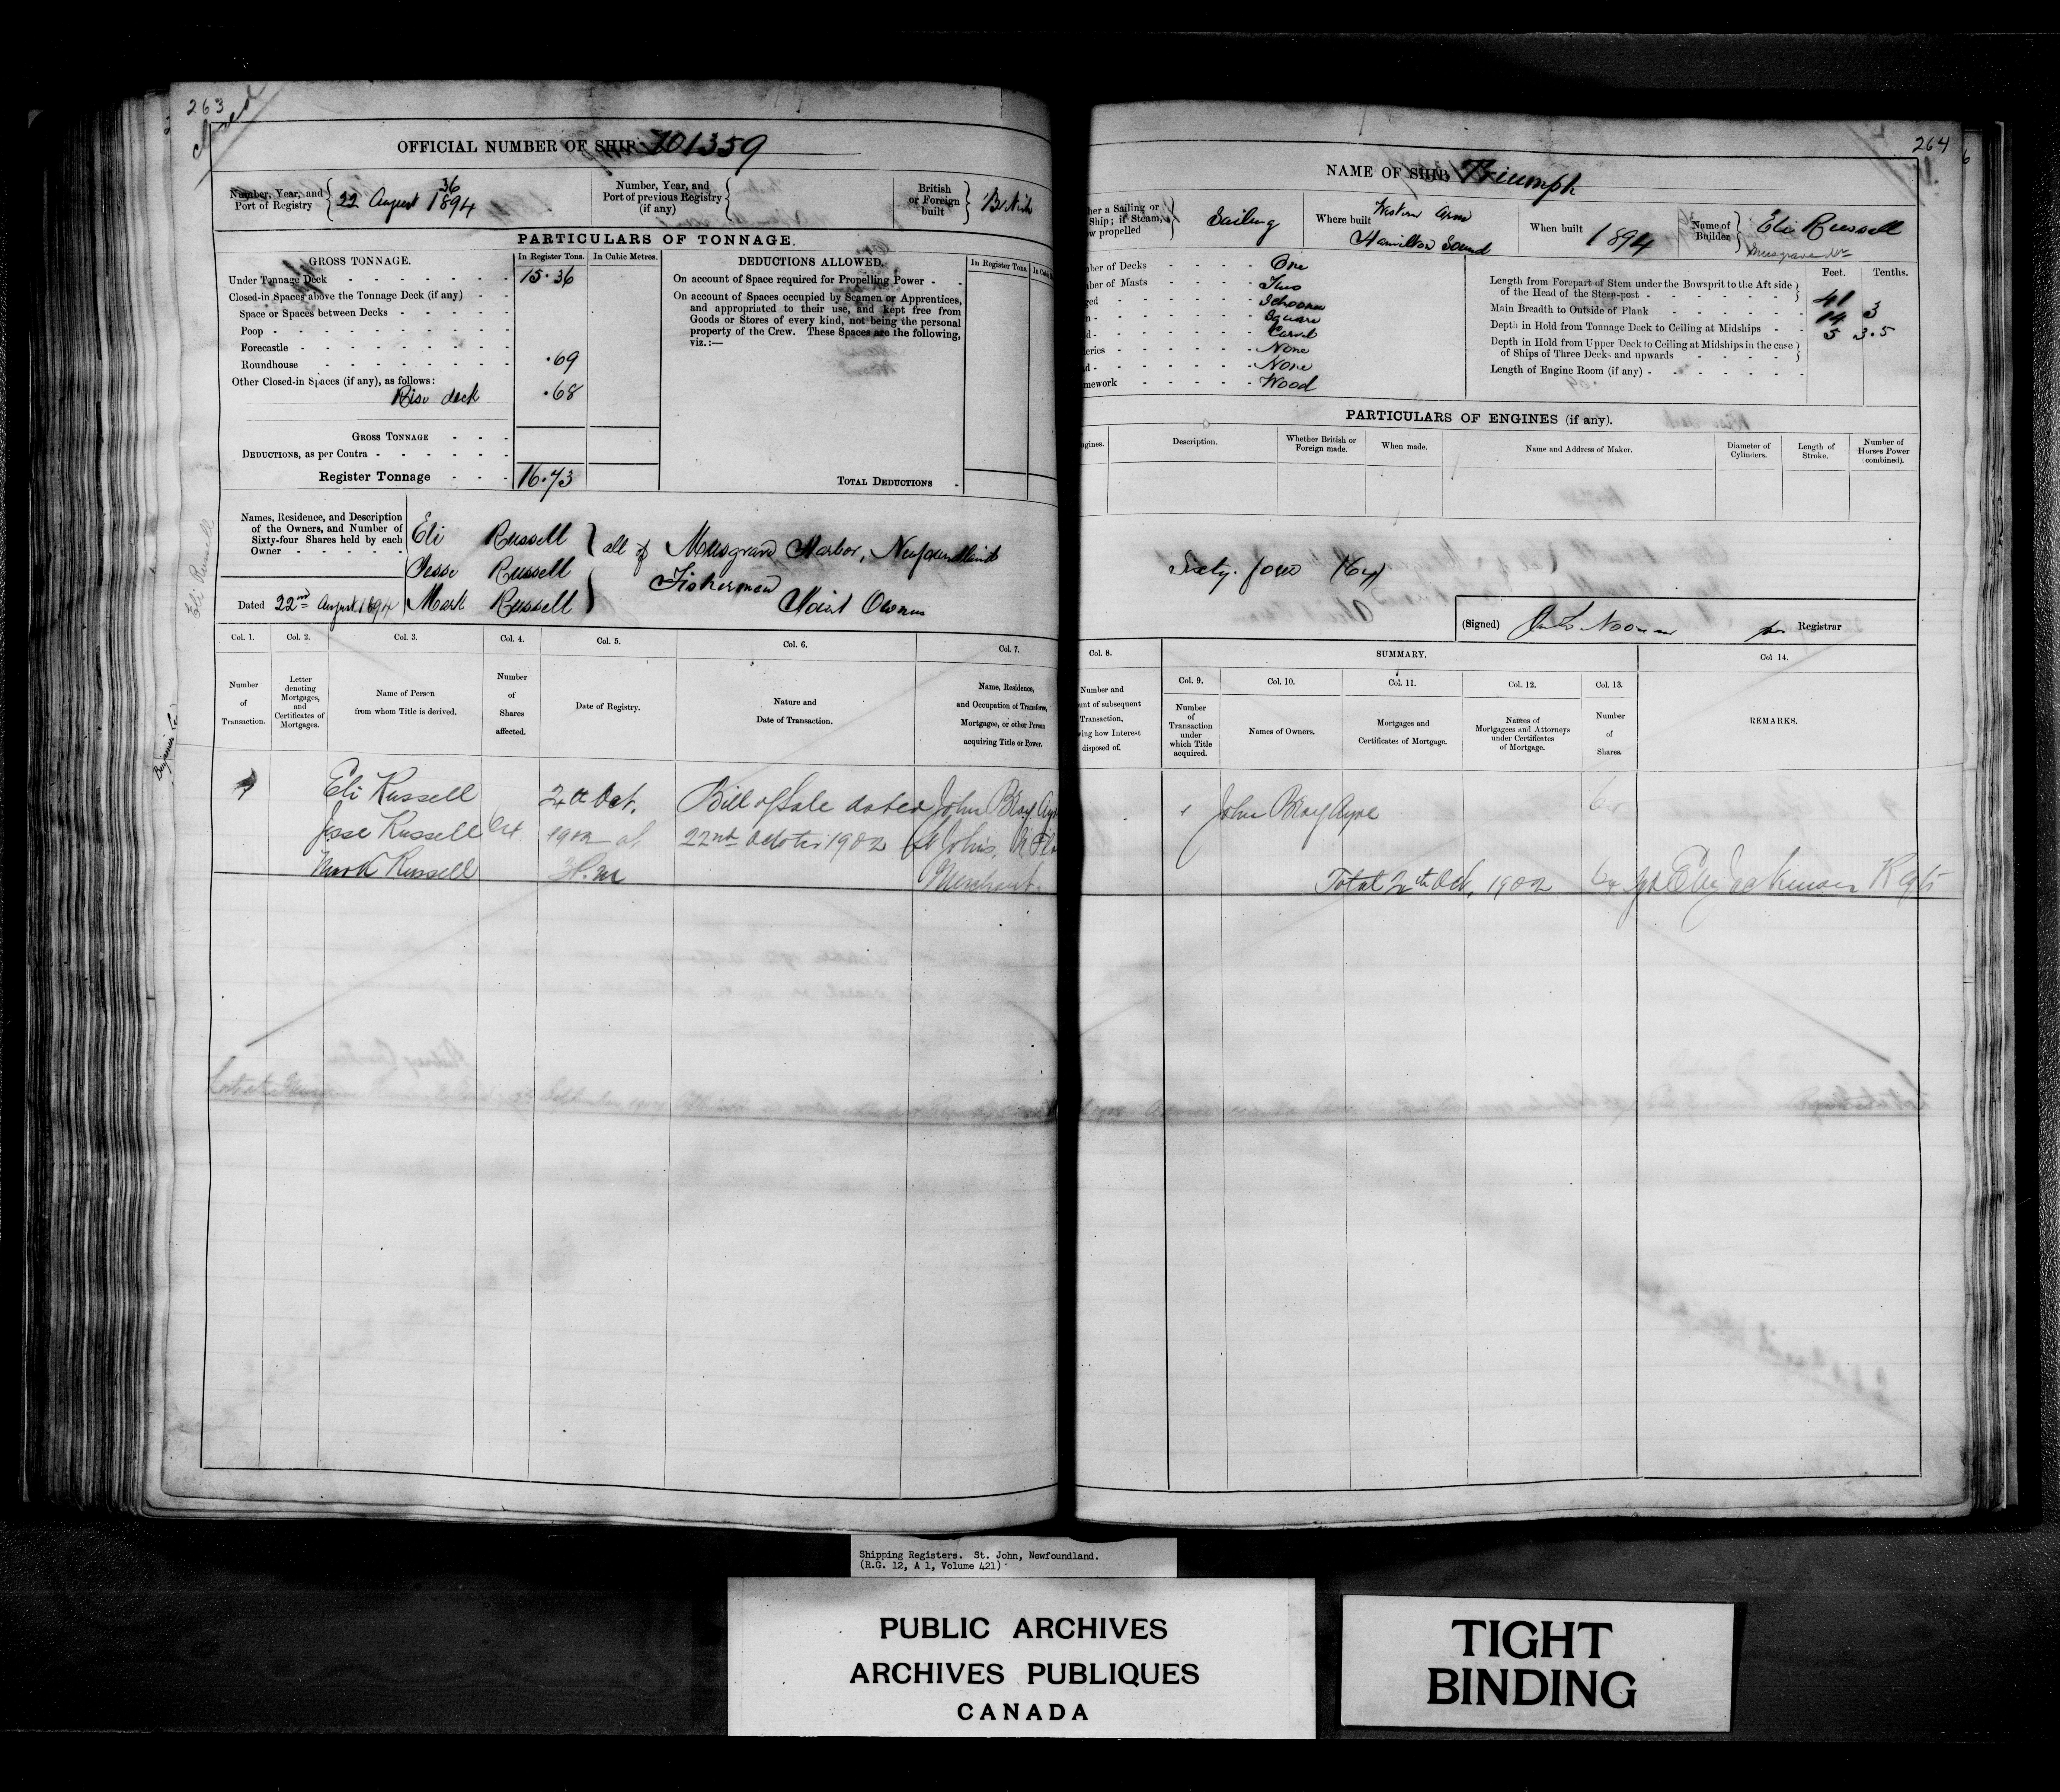 263
Closed
OFFICIAL NUMBER OF SHIP 101359
Number, Year, and Port of Registry { 36 22 August 1894
Number, Year, and Port of previous Registry (if any) {
British or Foreign built } British
PARTICULARS OF TONNAGE.
GROSS TONNAGE.
In Register Tons.
In Cubic Metres.
DEDUCTIONS ALLOWED.
In Register Tons.
Under Tonnage Deck 15.36
Closed-in Spaces above the Tonnage Deck (if any)
Space or Spaces between Decks
Poop
Forecastle
Roundhouse .69
Other Closed-in Spaces (if any), as follows:
Rise deck .68
GROSS TONNAGE
DEDUCTIONS, as per Contra
Register Tonnage 16.73
On account of Space required for Propelling Power
On account of Spaces occupied by Seamen or Apprentices,
and appropriated to their use, and kept free from
Goods or Stores of every kind, not being the personal
property of the Crew. These Spaces are the following,
viz.:—
TOTAL DEDUCTIONS
Names, Residence, and Description
of the Owners, and Number of
Sixty-four Shares held by each
Owner
Eli Russell
Jesse Russell
Mark Russell
} all of Musgrave Harbor, Newfoundland
Fishermen
Joint Owners
Dated 22nd August 1894
Eli Russell
Col. 1.
Col. 2.
Col. 3.
Col. 4.
Col. 5.
Col. 6.
Col. 7.
Number of Transaction.
Letter denoting Mortgages, and Certificates of Mortgages.
Name of Person from whom Title is derived.
Number of Shares affected.
Date of Registry.
Nature and Date of Transaction.
Name, Residence, and Occupation of Transferee, Mortgagee, or other Person acquiring Title or Power.
Eli Russell
Jesse Russell 64
Mark Russell
24th Oct.
1902 at
Bill of Sale dated
22nd October 1902
John Bray Ayre
St John's, N Fld
Merchant.
264
NAME OF SHIP Triumph
her a Sailing or
Ship; if Steam,
w propelled } Sailing
Where built Western Arm
Hamilton Sound
When built 1894
Name of Builder } Eli Russell
ber of Decks One
ber of Masts Two
ged Schooner
n Square
ld Carvel
eries None
d None
mework Wood
Feet. Tenths.
Length from Forepart of Stem under the Bowsprit to the Aft side
of the Head of the Stern-post 41
Main Breadth to Outside of Plank 14 3
Depth in Hold from Tonnage Deck to Ceiling at Midships 5 3.5
Depth in Hold from Upper Deck to Ceiling at Midships in the case
of Ships of Three Decks and upwards
Length of Engine Room (if any)
PARTICULARS OF ENGINES (if any).
ngines.
Description.
Whether British or Foreign made.
When made.
Name and Address of Maker.
Diameter of Cylinders.
Length of Stroke.
Number of Horses Power (combined).
Sixty four (64)
(Signed) Noonan for Registrar
Col. 8.
SUMMARY.
Col 14.
Col. 9.
Col. 10.
Col. 11.
Col. 12.
Col. 13.
Number and
unt of subsequent
Transaction,
wing how Interest
disposed of.
Number of Transaction under which Title acquired.
Names of Owners.
Mortgages and Certificates of Mortgage.
Names of Mortgagees and Attorneys under Certificates of Mortgage.
Number of Shares.
REMARKS.
1 John Bray Ayre 64
Total 24th Oct, 1902 64
Shipping Registers. St. John, Newfoundland.
(R.G. 12, A 1, Volume 421)
PUBLIC ARCHIVES
ARCHIVES PUBLIQUES
CANADA
TIGHT
BINDING